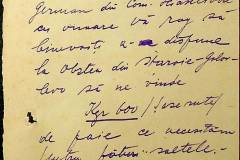 German din Com.
ca urmare vă rog să
binevoiți a dispune
la Obștea din Staroie-Golo-
să ne vinde
Kgr 600 / șase sute /
de paie ce necesităm
pentru saltele.